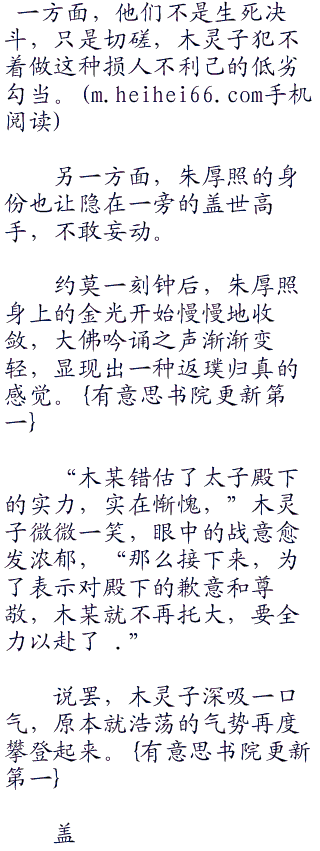 一方面，他们不是生死决
斗，只是切磋，木灵子犯不
着做这种损人不利己的低劣
勾当。(m.heihei66.com手机
阅读)
另一方面，朱厚照的身
份也让隐在一旁的盖世高
手，不敢妄动。
约莫一刻钟后，朱厚照
身上的金光开始慢慢地收
敛，大佛吟诵之声渐渐变
轻，显现出一种返璞归真的
感觉。{有意思书院更新第
一}
“木某错估了太子殿下
的实力，实在惭愧，”木灵
子微微一笑，眼中的战意愈
发浓郁，“那么接下来，为
了表示对殿下的歉意和尊
敬，木某就不再托大，要全
力以赴了 .”
说罢，木灵子深吸一口
气，原本就浩荡的气势再度
攀登起来。{有意思书院更新
第一}
盖